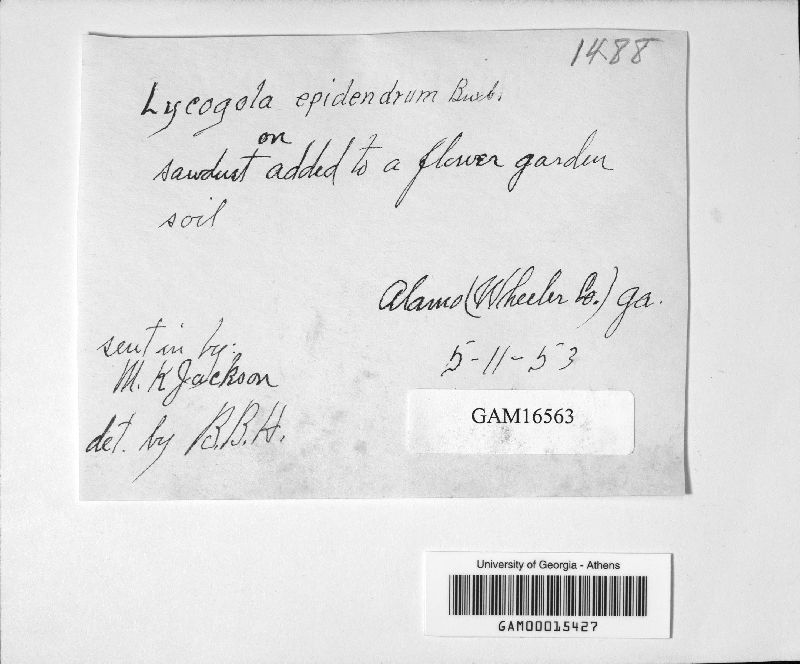 1488
Lycogola epidendrum Buxb.
on
sawdust added to a flower garden
soil
Alamo (Wheeler Co.) ga.
sent in by:
5-11-53
M. K Jackson
GAM16563
det. by B.B.H.
University of Georgia - Athens
GAM00015427